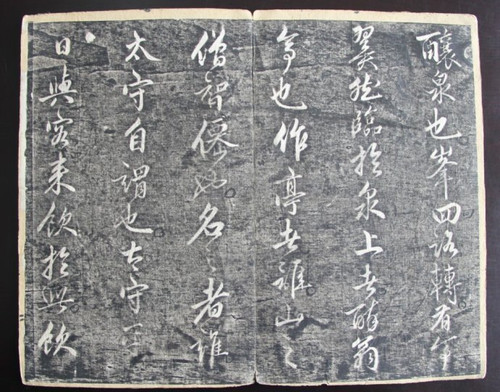 釀泉也峯回路轉有亭
翼然臨於泉上者醉翁
亭也作亭者誰山之
僧智僊也名之者誰
太守自謂也太守
日與客来飲於此飲